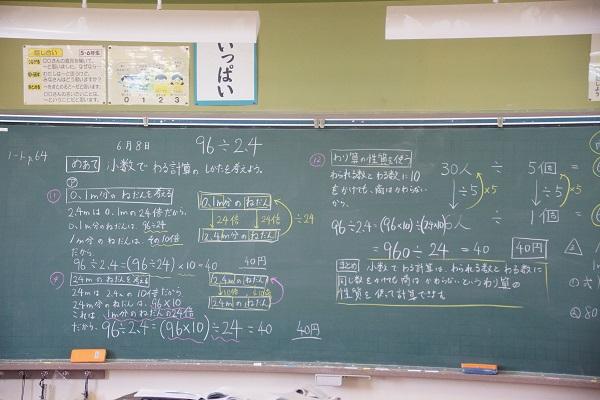 話し合い
5・6年生
0 1 2 3
いっぱい
ノートp.64
6月8日
96÷2.4
めあて 小数でわる計算のしかたを考えよう。
0.1m分のねだんを考える
2.4mは0.1mの24倍だから、
0.1m分のねだんは、96÷24
1m分のねだんは、その10倍
だから、
96÷2.4=(96÷24)×10=40
40円
0.1m分のねだん
24倍 24倍
÷24
2.4m分のねだん
24m分のねだんを考える
24mは2.4mの10倍だから
24m分のねだんは、96×10
これは1m分のねだんの24倍
だから、
96÷2.4=(96×10)÷24=40
40円
2.4m分のねだん
10倍 10倍
24m分のねだん
わり算の性質を使う
わられる数とわる数に10
をかけても、商はかわらない
から、
30人 ÷ 5個 =
÷5 ×5 ÷5 ×5
人 ÷ 1個 =
96÷2.4=(96×10)÷(2.4×10)
=960÷24=40
40円
まとめ 小数でわる計算は、わられる数とわる数に
同じ数をかけても商はかわらないというわり算の
性質を使って計算できる